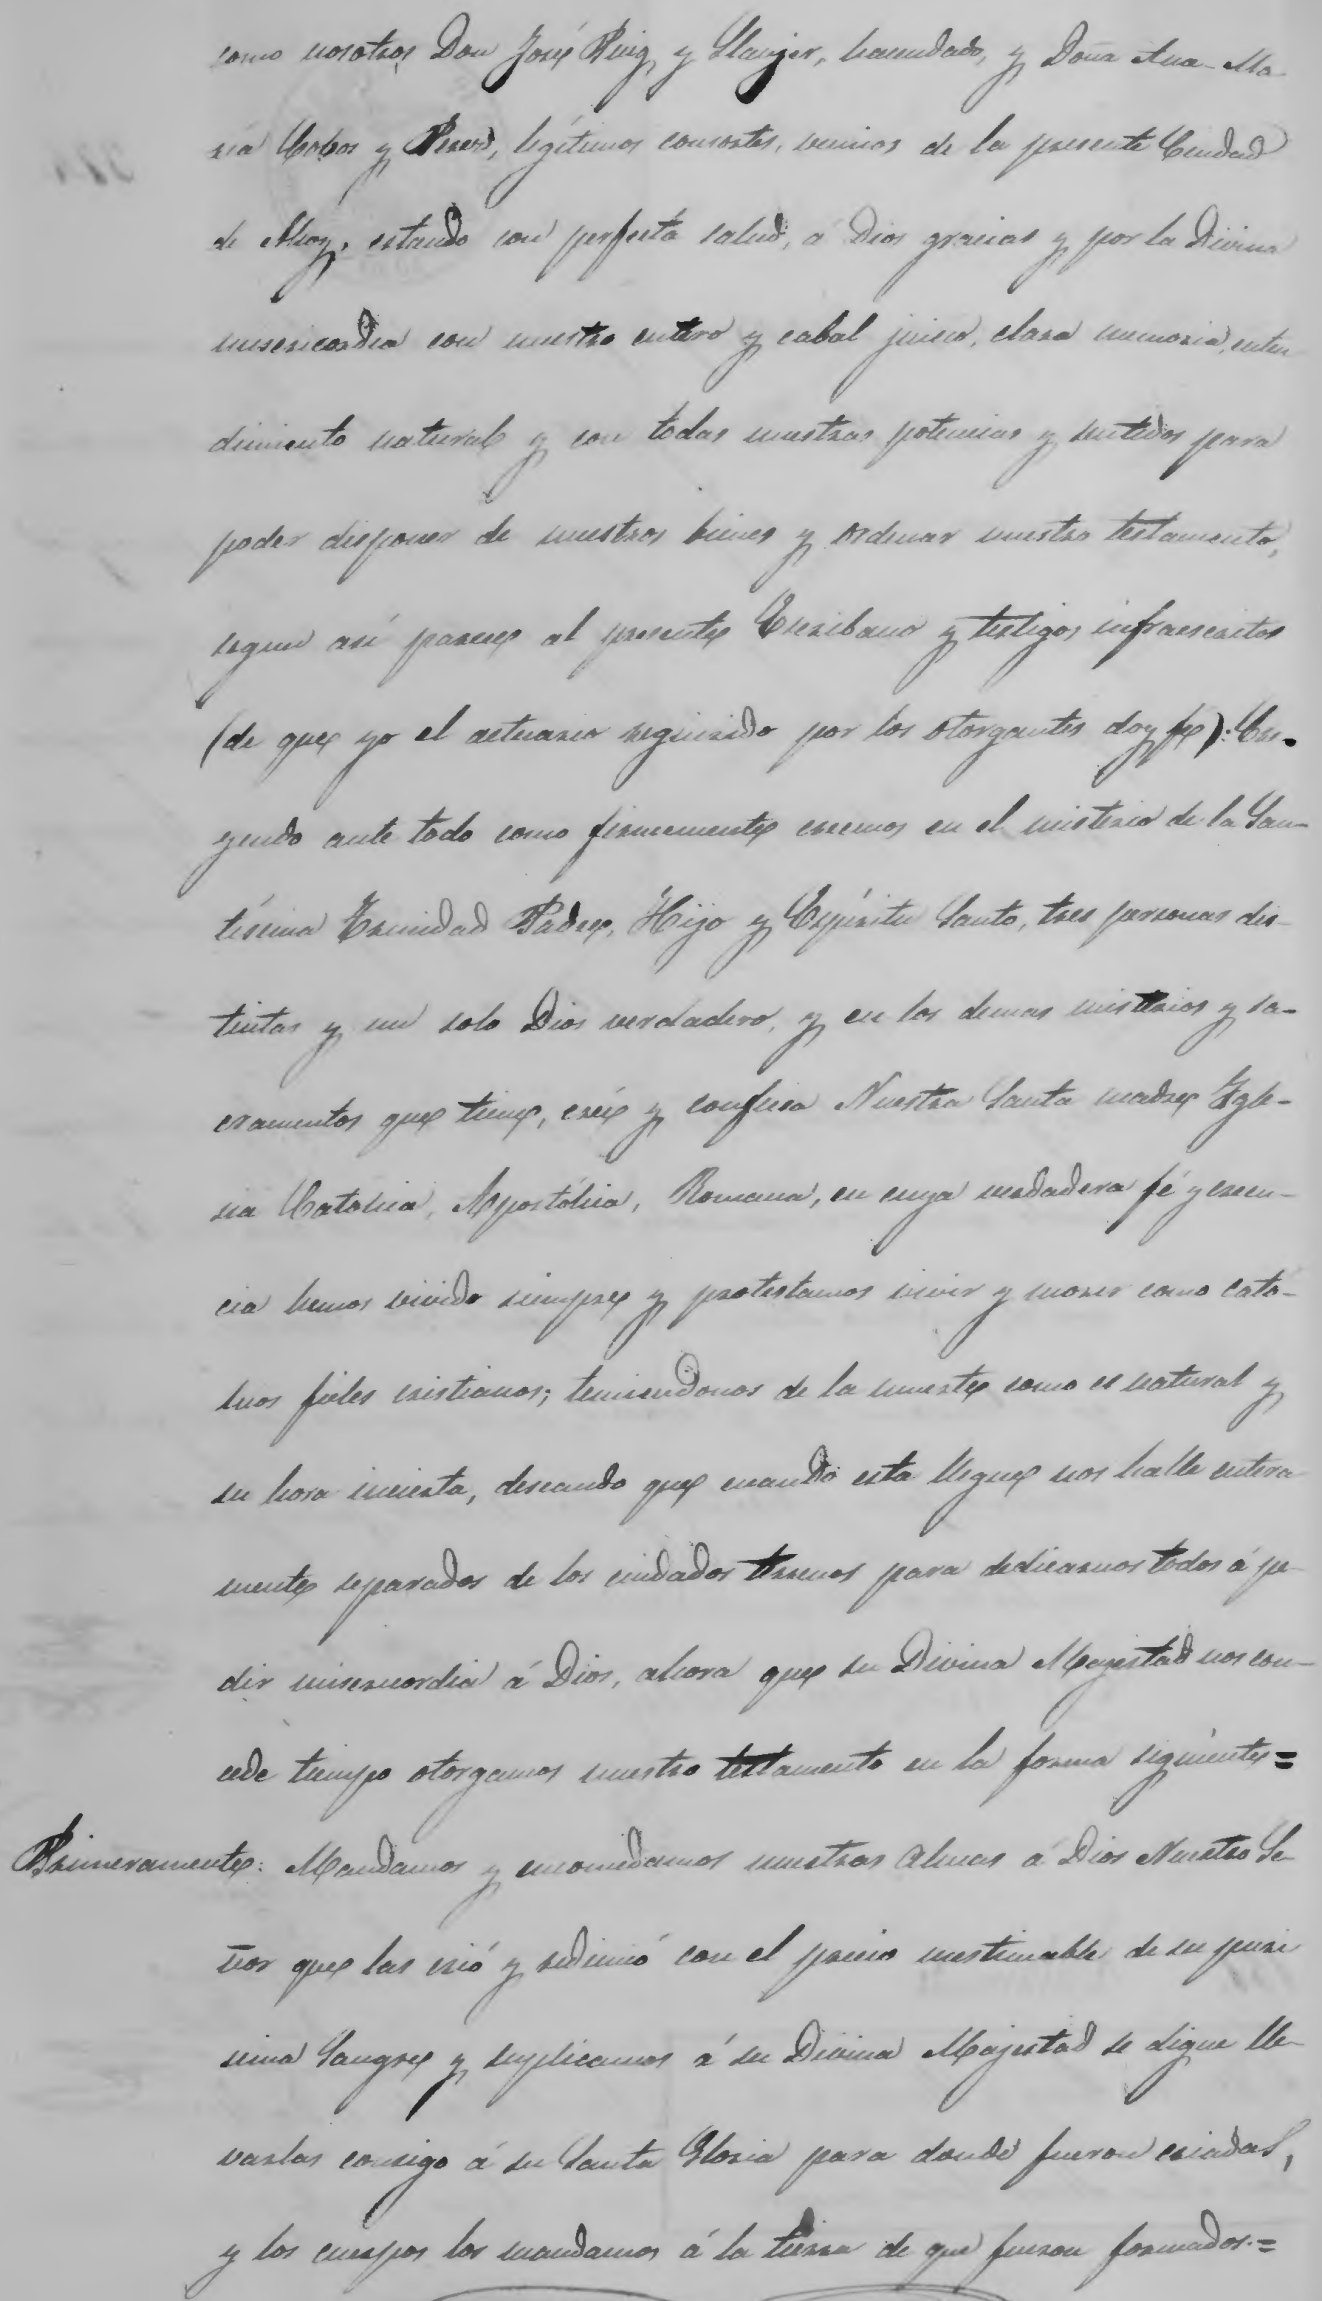 como nosotros Don José Puig y Llacer, hacendado, y Doña Ana Ma-
ria Cobos y Perez, legítimos consortes, vecinos de la presente Ciudad
de Alcoy, estando con perfecta salud, á Dios gracias y por la Divina
misericordia con nuestro entero y cabal juicio, clara memoria, enten-
dimiento natural y con todas nuestras potencias y sentidos para
poder disponer de nuestros bienes y ordenar nuestro testamento,
segun así parece al presente Escribano y testigos infraescritos
(de que yo el actuario requirido por los otorgantes doy fe): Cre-
yendo ante todo como firmemente creemos en el misterio de la San-
tísima Trinidad Padre, Hijo y Espíritu Santo, tres personas dis-
tintas y un solo Dios verdadero, y en los demas misterios y sa-
cramentos que tiene, creé y confiesa Nuestra Santa madre Ygle-
sia Catolica, Apostólica, Romana, en cuya verdadera fé y creen-
cia hemos vivido siempre y protestamos vivir y morir como cato-
licos fieles cristianos; temiendonos de la muerte como es natural y
su hora incierta, deseando que cuando esta llegue nos halle entera
mente separados de los cuidados terrenos para dedicarnos todos á pe-
dir misericordia á Dios, ahora que su Divina Majestad nos con-
cede tiempo otorgamos nuestro testamento en la forma siguiente=
Primeramente: Mandamos y encomedamos nuestras Almas á Dios Nuestro Se-
ñor que las crió y redimió con el precio inestimable de su purí
sima Sangre y suplicamos á su Divina Majestad se digne lle-
varlas consigo á su Santa Gloria para donde fueron criadas,
y los cuerpos los mandamos á la tierra de que fueron formados.=